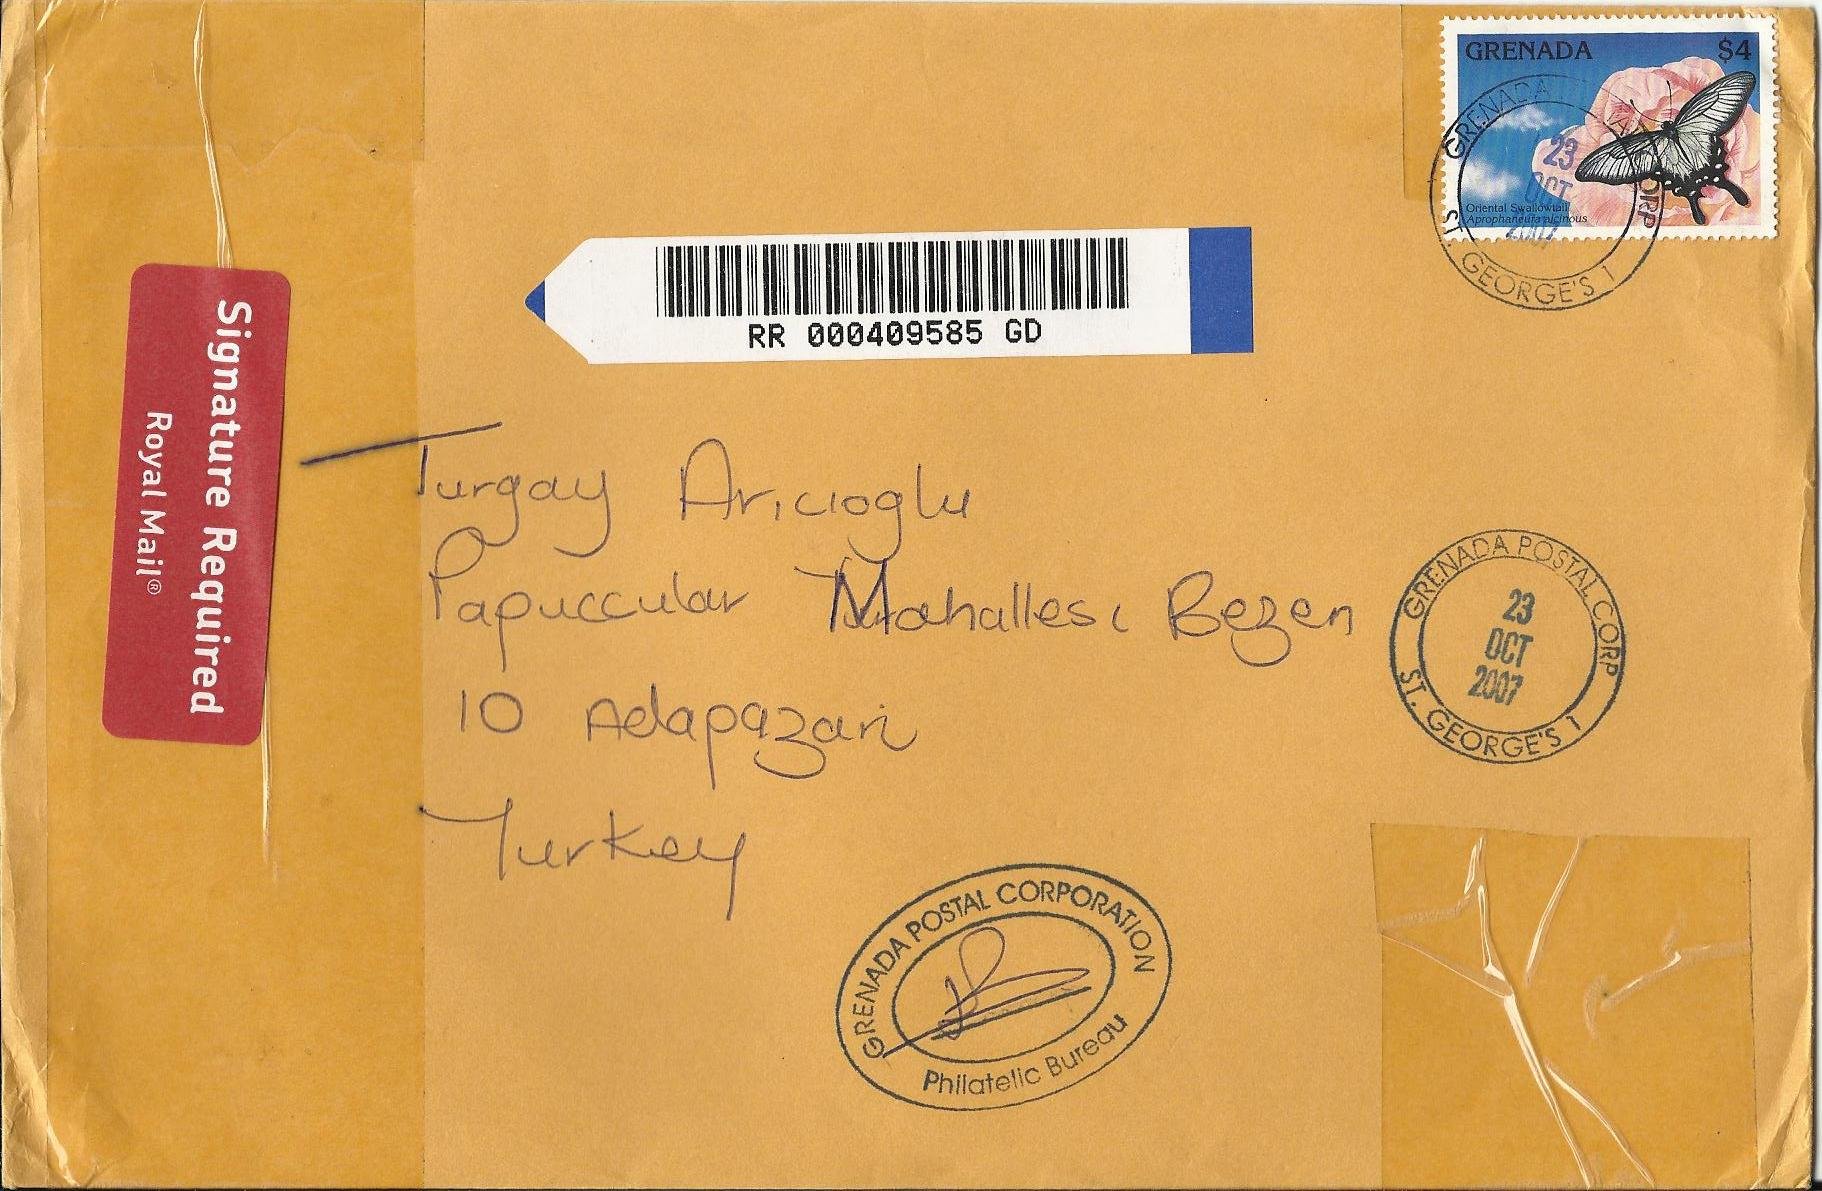 GRENADA $4
Oriental Swallowtail
Aprophaneura alcinous
GRENADA POSTAL CORP
23
OCT
2007
ST. GEORGE'S 1
RR 000409585 GD
Signature Required
Royal Mail®
Turgay Aricioglu
Papuccular Mahallesi Bezen
10 Adapazari
Turkey
GRENADA POSTAL CORP
23
OCT
2007
ST. GEORGE'S 1
GRENADA POSTAL CORPORATION
Philatelic Bureau